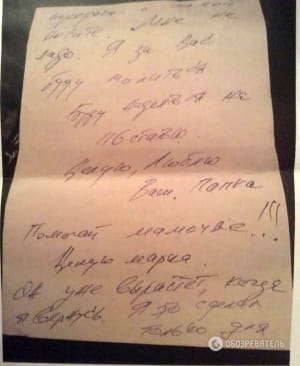 живите. Мне не
надо. Я за вас
буду молиться
Буду надеяться на
116 ставю.
Целую, Люблю
Ваш, Папка
Помогай мамочке!!!
Целую Марка.
Он уже вырастет, когда
я вернусь. Я это сделал
только для
ОБОЗРЕВАТЕЛЬ